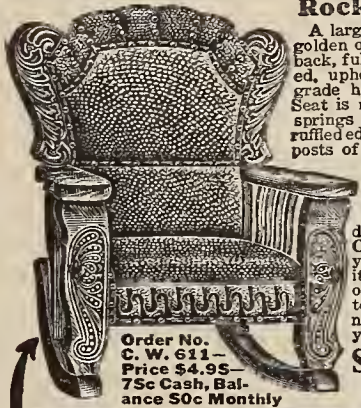 Rock
A larg
golden o
back, ful
ed, uph
grade h
Seat is
springs
ruffled ed
posts of
d
C
y
it
o
t
n
y
S
Order No.
C. W. 611—
Price $4.95—
75c Cash, Bal-
ance 50c Monthly